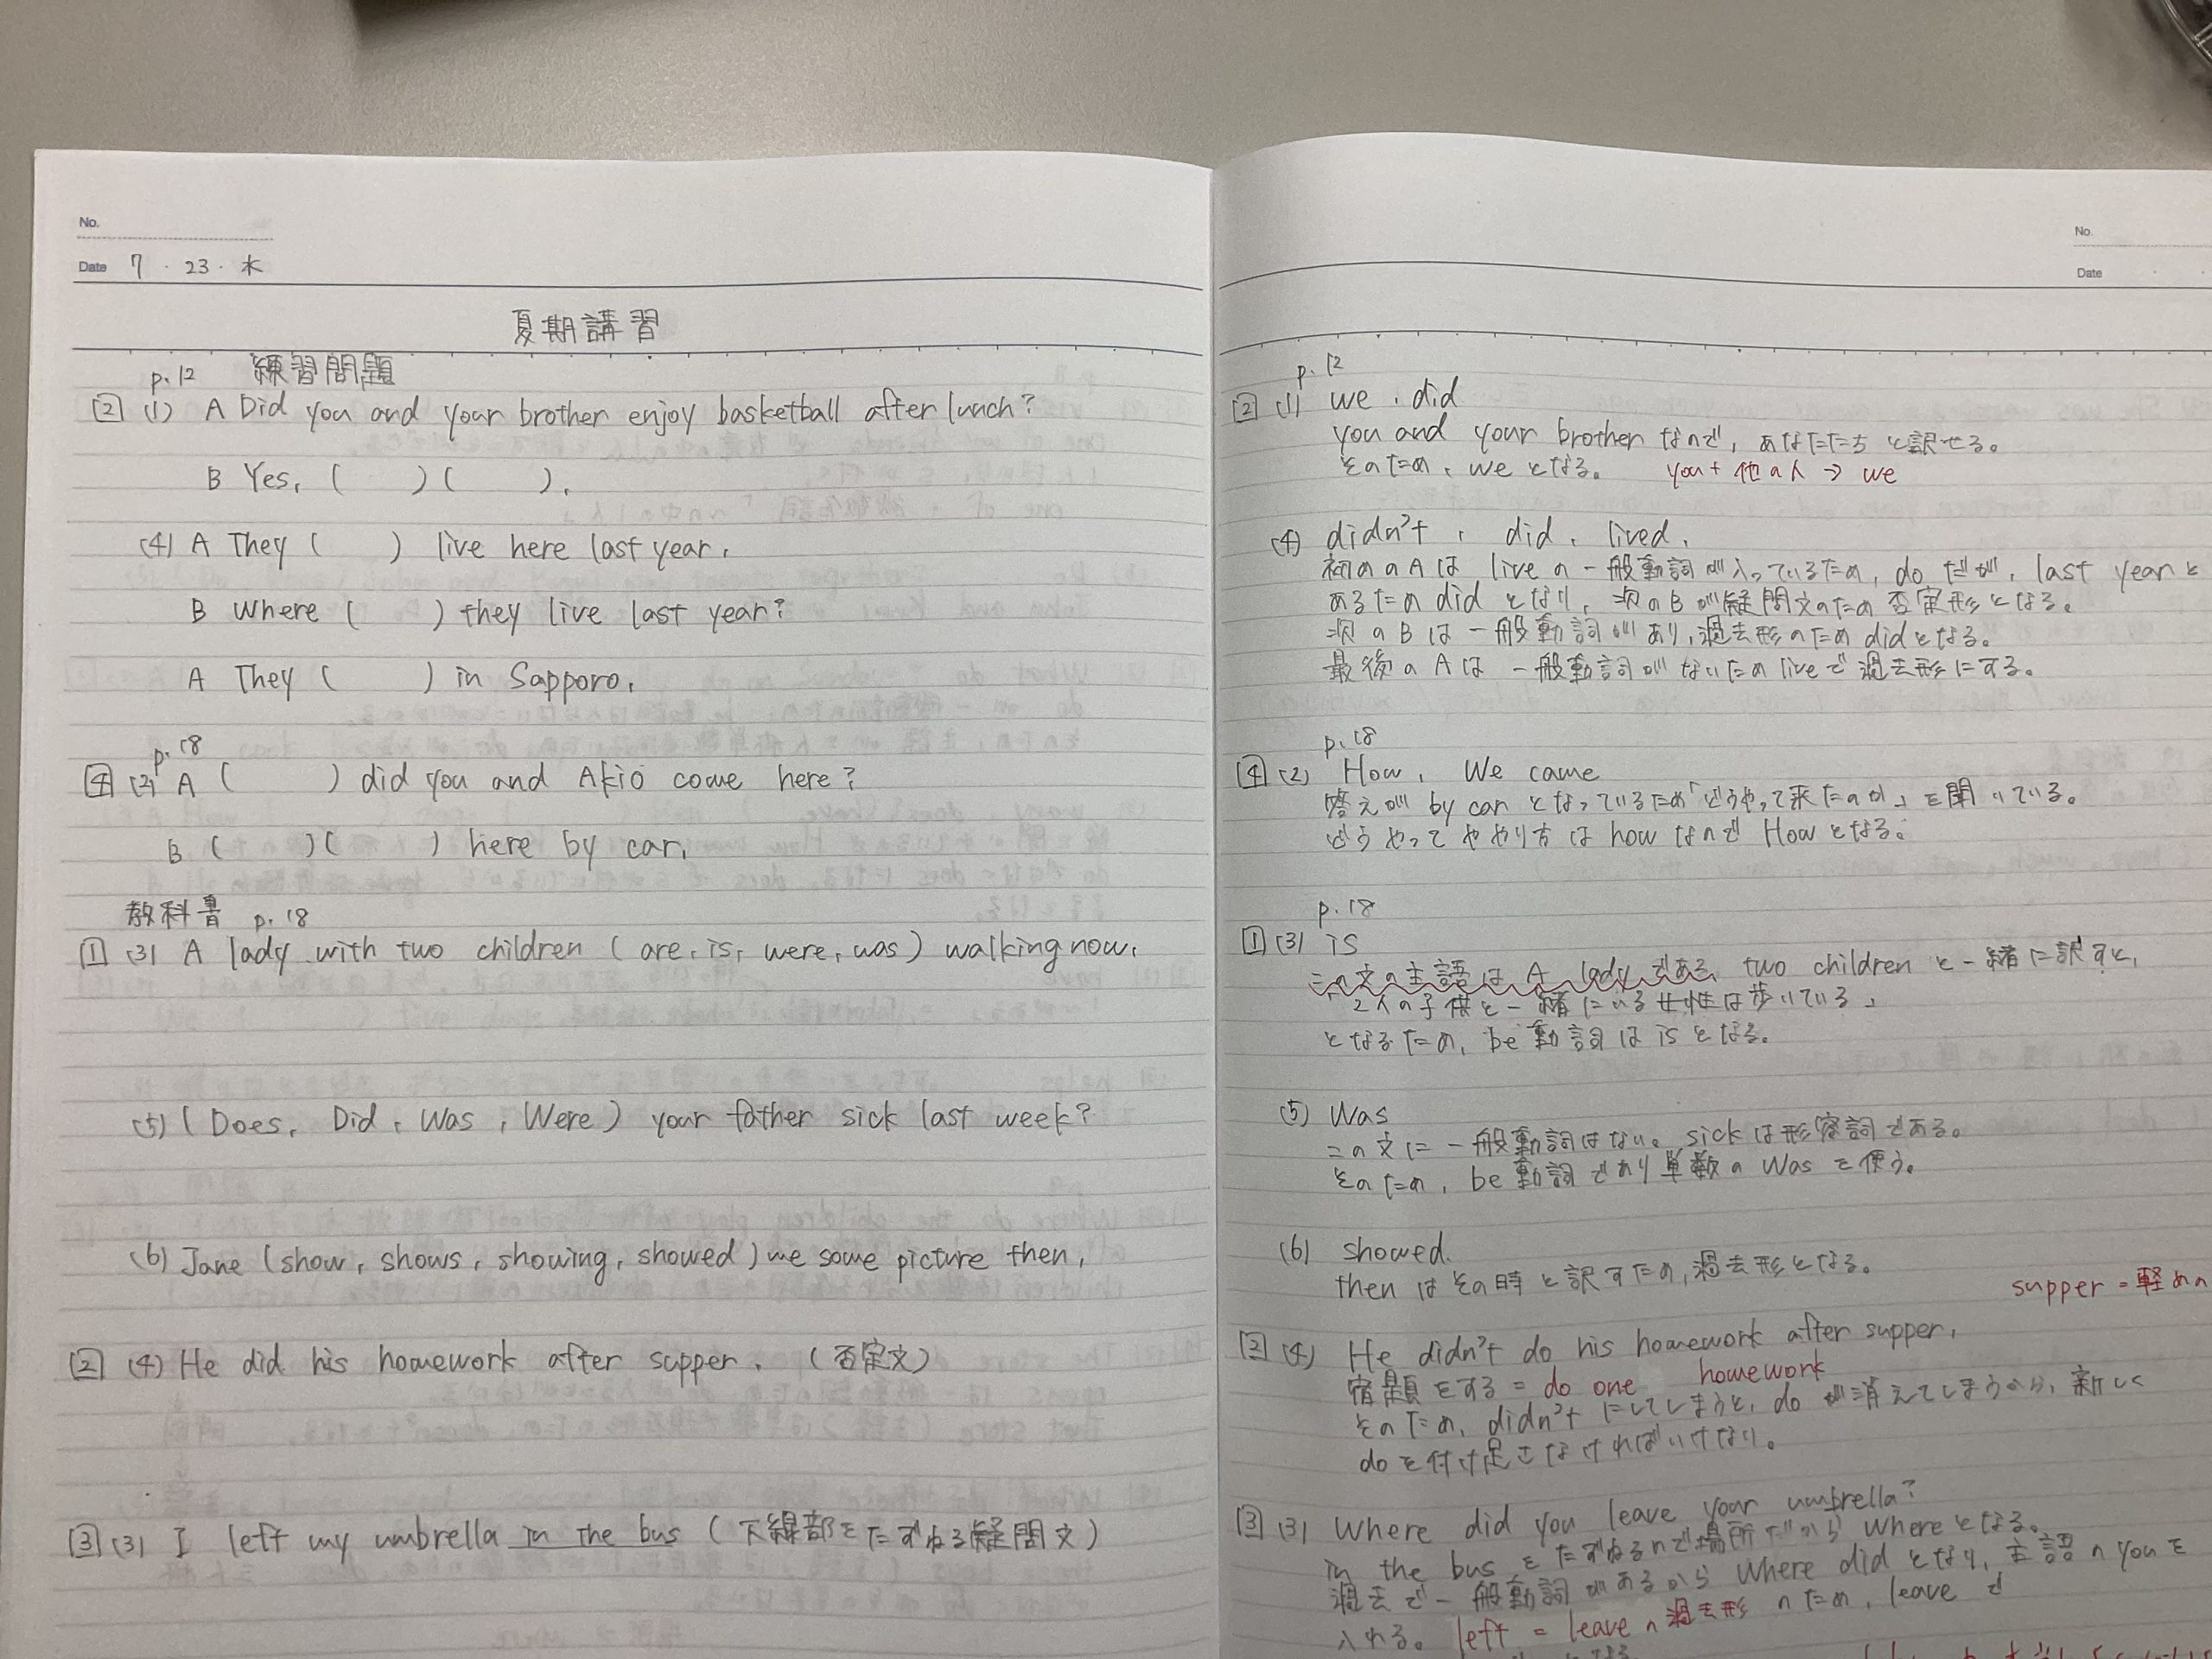 No.
Date 7・23・水
夏期講習
p.12 練習問題
[2] (1) A Did you and your brother enjoy basketball after lunch?
B Yes, ( ) ( ).
(4) A They ( ) live here last year.
B Where ( ) they live last year?
A They ( ) in Sapporo.
p.18
[4] (2) A ( ) did you and Akio come here?
B ( ) ( ) here by car.
教科書 p.18
[1] (3) A lady with two children (are, is, were, was) walking now.
(5) (Does, Did, Was, Were) your father sick last week?
(6) Jane (show, shows, showing, showed) me some picture then.
[2] (4) He did his homework after supper. (否定文)
[3] (3) I left my umbrella in the bus (下線部をたずねる疑問文)
No.
Date
p.12
[2] (1) we, did
you and your brother なので, あなたたちと訳せる。
そのため, we となる。 you + 他の人 → we
(4) didn't, did, lived.
初めのAは live の一般動詞が入っているため, do だが, last year と
あるため did となり, 次のBが疑問文のため否定形となる。
次のBは一般動詞があり, 過去形のため did となる。
最後のAは一般動詞がないため live で過去形にする。
p.18
[4] (2) How, We came
答えが by car となっているため「どうやって来たのか」を聞いている。
どうやってややり方は how なので How となる。
p.18
[1] (3) is
この文の主語は A lady である, two children と一緒に訳すと,
「2人の子供と一緒にいる女性は歩いている」
となるため, be動詞は is となる。
(5) Was
この文に一般動詞はない。sick は形容詞である。
そのため, be動詞であり単数の Was を使う。
(6) showed.
then はその時と訳すため, 過去形となる。
supper = 軽めの
[2] (4) He didn't do his homework after supper.
宿題をする = do one homework
そのため, didn't にしてしまうと, do が消えてしまうから, 新しく
do を付け足さなければいけない。
[3] (3) Where did you leave your umbrella?
in the bus をたずねるので場所だから Where となる。
過去で一般動詞があるから Where did となり, 主語の you を
入れる。 left = leave の過去形 のため, leave で